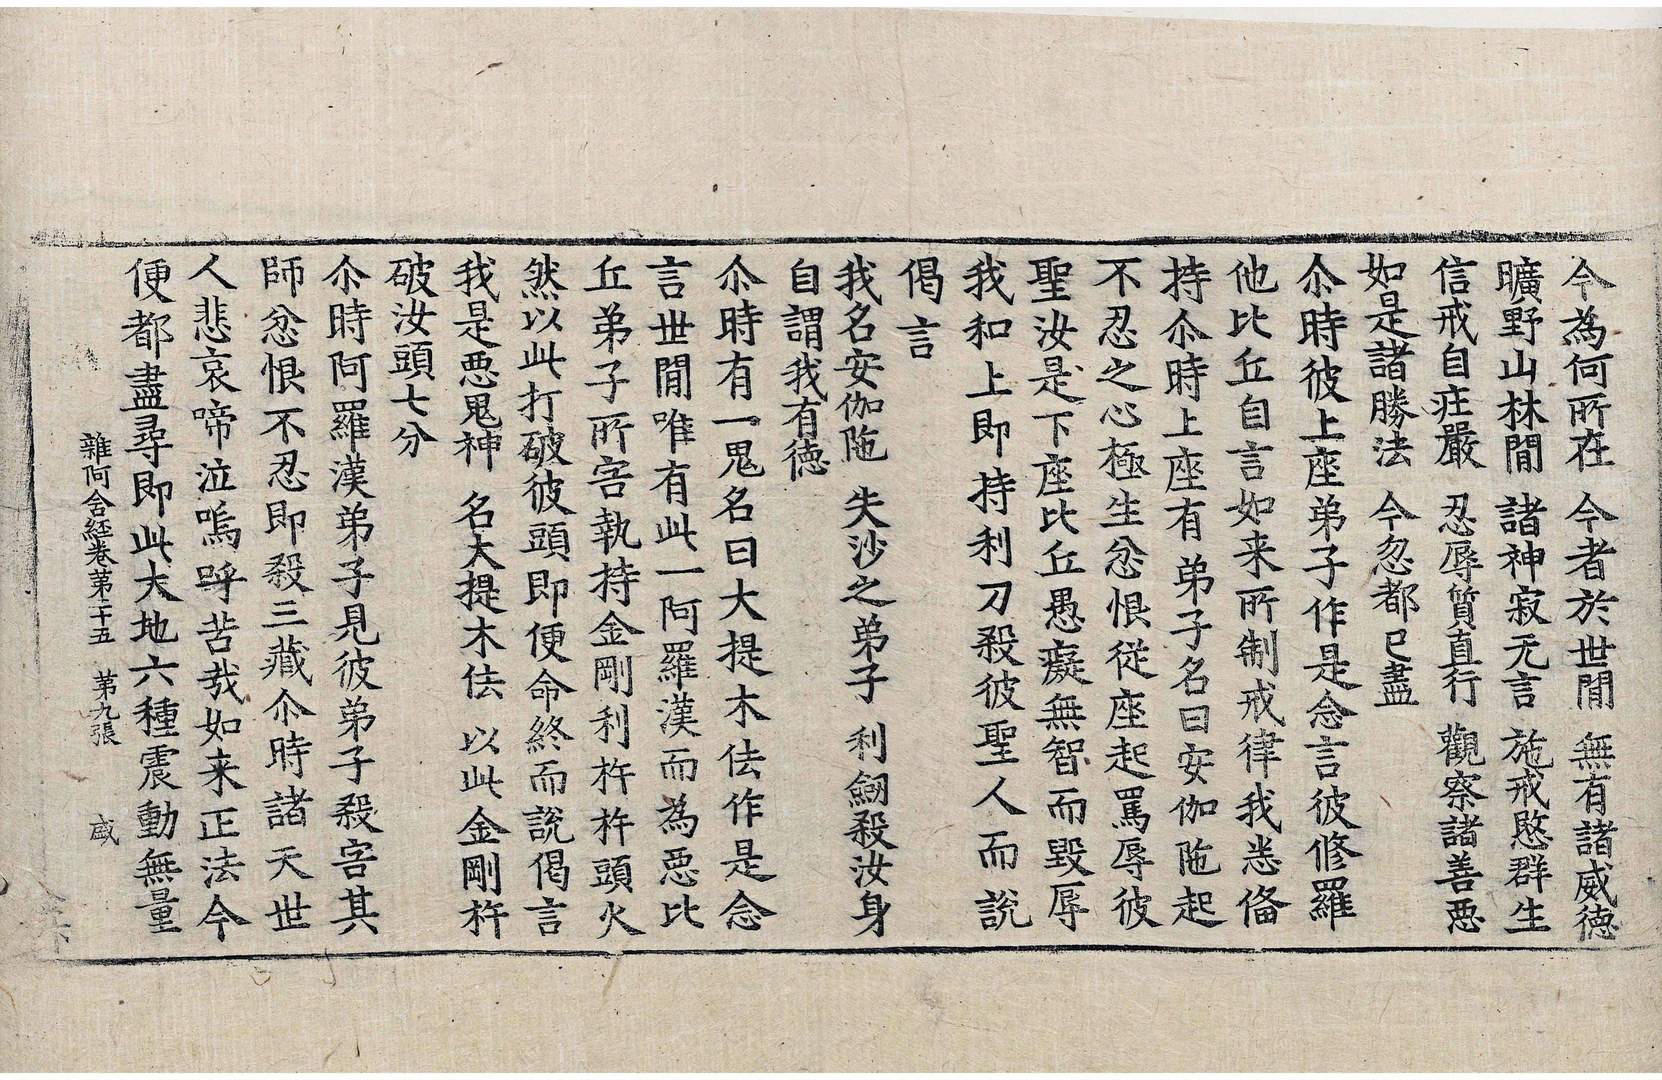 今為何所在　今者於世閒　無有諸威德
曠野山林閒　諸神寂无言　施戒愍群生
信戒自莊嚴　忍辱質直行　觀察諸善惡
如是諸勝法　今忽都已盡
尒時彼上座弟子作是念言彼修羅
他比丘自言如来所制戒律我悉俻
持尒時上座有弟子名曰安伽陁起
不忍之心極生忿恨從座起罵辱彼
聖汝是下座比丘愚癡無智而毀辱
我和上即持利刀殺彼聖人而說
偈言
我名安伽陁　失沙之弟子　利劒殺汝身
自謂我有德
尒時有一鬼名曰大提木佉作是念
言世閒唯有此一阿羅漢而為惡比
丘弟子所害執持金剛利杵杵頭火
然以此打破彼頭即便命終而說偈言
我是惡鬼神　名大提木佉　以此金剛杵
破汝頭七分
尒時阿羅漢弟子見彼弟子殺害其
師忿恨不忍即殺三藏尒時諸天世
人悲哀啼泣嗚呼苦哉如来正法今
便都盡尋即此大地六種震動無量
雜阿含経卷苐二十五　苐九張　㦿